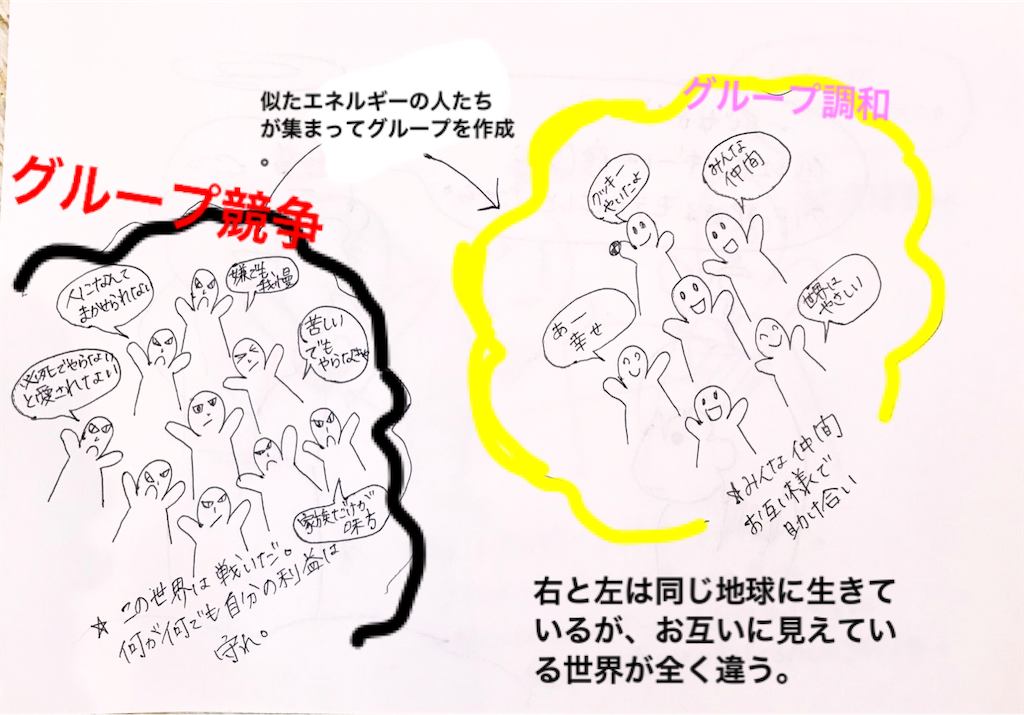 似たエネルギーの人たち
が集まってグループを作成
。
グループ競争
人になんて
まかせられない
嫌でも
我慢
苦しい
でも
やらなきゃ
必死でやらない
と愛されない
家族だけが
味方
☆この世界は戦いだ。
何が何でも自分の利益は
守れ。
グループ調和
クッキー
やいたよ
みんな
仲間
あー
幸せ
世界は
やさしい
☆みんな仲間
お互い様で
助け合い
右と左は同じ地球に生きて
いるが、お互いに見えてい
る世界が全く違う。